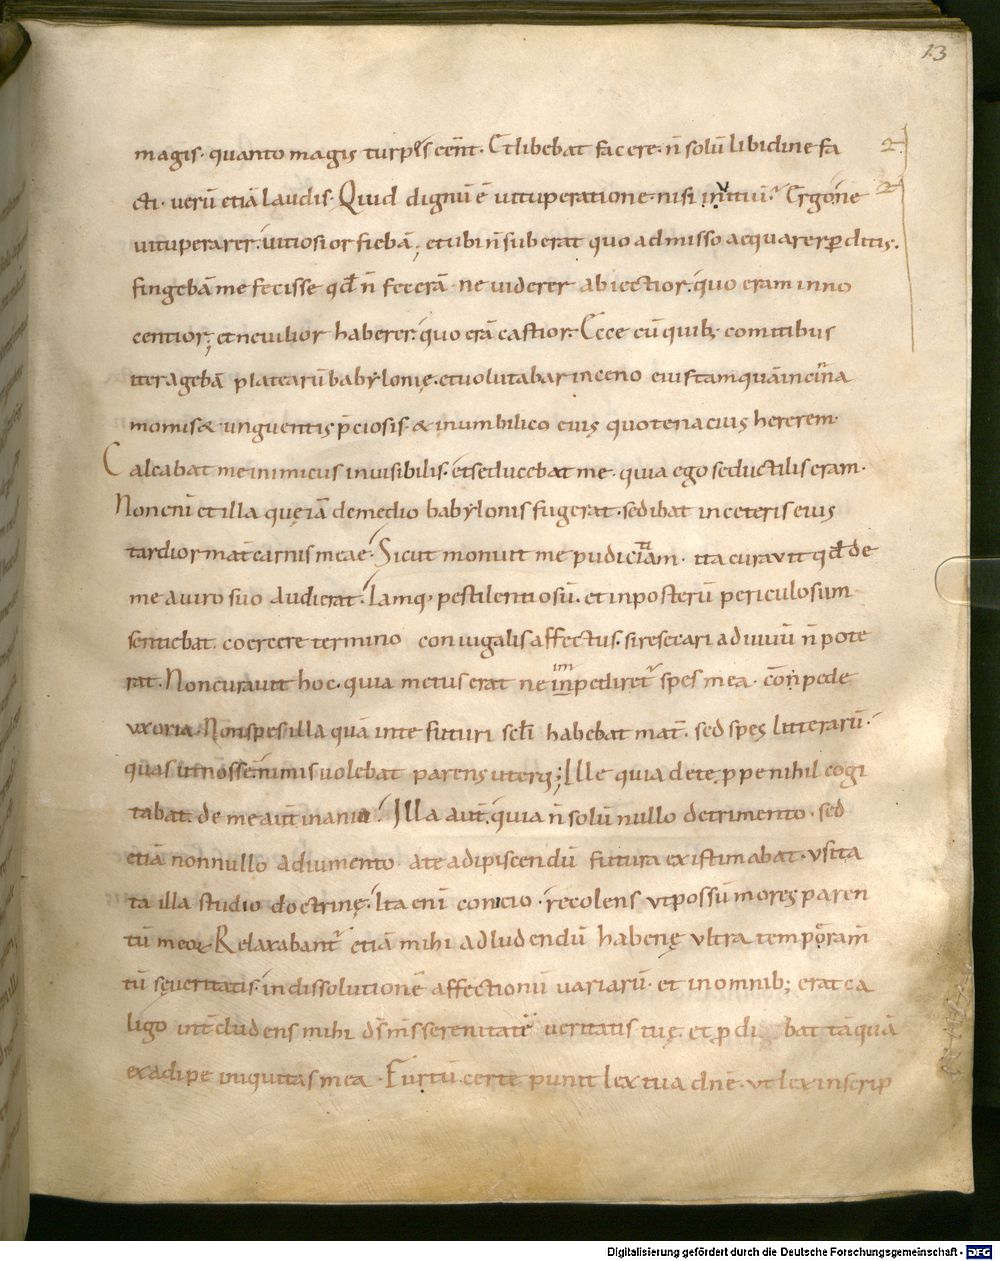 13
magis· quanto magis turpes cen̄t· Et libebat facere· n̄ solū libidine fa
cti· verū etiā laudis· Quid dignū ē vituperatione· nisi vitiū? Ergo ne
vituperarer· vitiosior fiebā; et ubi n̄ suberat quo admisso aequarer p̱ditis·
fingebā me fecisse qđ n̄ fecerā· ne viderer abiectior· quo eram inno
centior; et ne vilior haberer· quo erā castior· Ecce cū quib; comitibus
iter agebā platearū babylonię· et volutabar in ceno eius tamquā in cīna
momis & unguentis p̄ciosis· & in umbilico eius quo tenacius hererem·
Calcabat me inimicus invisibilis· et seducebat me· quia ego seductilis eram·
Non enī et illa quę iā de medio babylonis fugerat· sed ibat in ceteris eius
tardior mat̄ carnis meae· Sicut monuit me pudicitiam· ita curavit qđ de
me a viro suo audierat· Iamq; pestilentiosū· et in posterū periculosum
sentiebat· coercere termino coniugalis affectus· si resecari ad vivū n̄ pote
rat· Non curavit hoc· quia metus erat ne impediret᷑ spes mea· compede
vxoria· Non spes illa quā in te futuri sc̄li habebat mat̄· sed spes litterarū·
quas ut nossē nimis volebat parens uterq; Ille quia de te p̱pe nihil cogi
tabat· de me aut̄ inania· Illa aut̄· quia n̄ solū nullo detrimento· sed
etiā nonnullo adiumento ad te adipiscendū futura existimabat· vsita
ta illa studio doctrinę· Ita enī conicio· recolens vt possū mores paren
tū meoꝝ· Relaxabant᷑ etiā mihi ad ludendū habenę vltra temperam̄
tū sęveritatis· in dissolutionē affectionū variarū· et in omnib; erat ca
ligo int̄cludens mihi d̄s m̄s serenitatē veritatis tuę· et p̱di bat tāquā
ex adipe iniquitas mea· Furtū certe punit lex tua dn̄e· vt lex inscrip
Digitalisierung gefördert durch die Deutsche Forschungsgemeinschaft - DFG